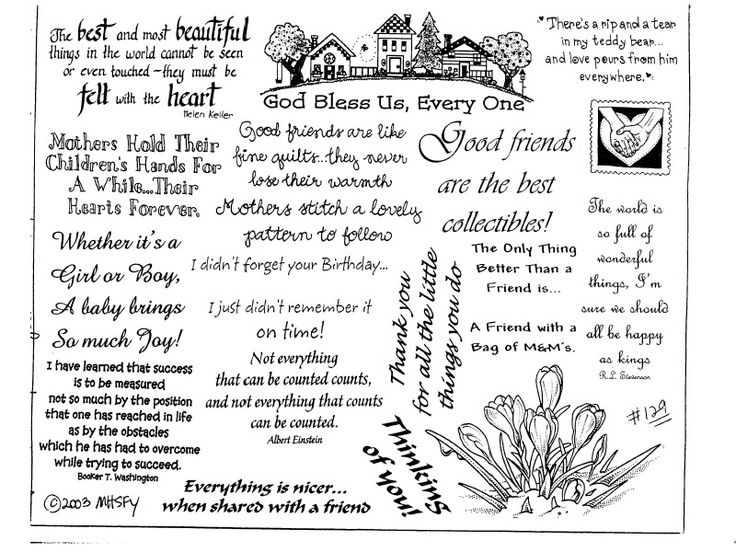 The best and most beautiful
things in the world cannot be seen
or even touched-they must be
felt with the heart
Helen Keller
God Bless Us, Every One
There's a rip and a tear
in my teddy bear...
and love pours from him
everywhere.
Mothers Hold Their
Children's Hands For
A While...Their
Hearts Forever.
Good friends are like
fine quilts..they never
lose their warmth
Mothers stitch a lovely
pattern to follow
Good friends
are the best
collectibles!
The world is
so full of
wonderful
things, I'm
sure we should
all be happy
as kings
R.L. Stevenson
Whether it's a
Girl or Boy,
A baby brings
So much Joy!
I didn't forget your Birthday...
I just didn't remember it
on time!
Thank you
for all the little
things you do
The Only Thing
Better Than a
Friend is...
A Friend with a
Bag of M&M's.
I have learned that success
is to be measured
not so much by the position
that one has reached in life
as by the obstacles
which he has had to overcome
while trying to succeed.
Booker T. Washington
Not everything
that can be counted counts,
and not everything that counts
can be counted.
Albert Einstein
Thinking
of you!
#129
©2003 MHSFY
Everything is nicer...
when shared with a friend